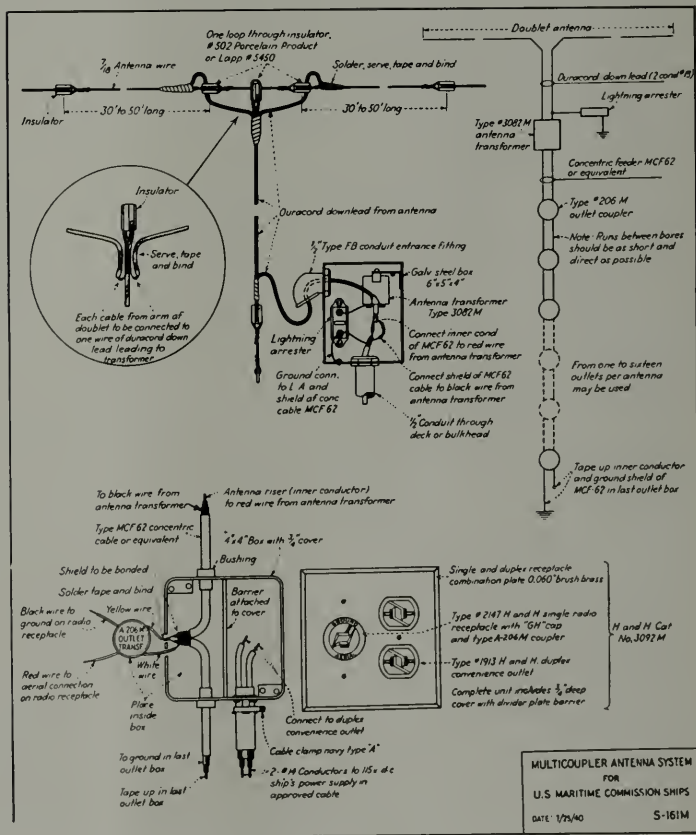 One loop through insulator,
#502 Porcelain Product
or Lapp #5450
7/18 Antenna wire
Solder, serve, tape and bind
30' to 50' long
30' to 50' long
Insulator
Insulator
Serve, tape
and bind
Each cable from arm of
doublet to be connected to
one wire of duracord down
lead leading to
transformer
Duracord downlead from antenna
1/2" Type FB conduit entrance fitting
Galv steel box
6"x5"x4"
Antenna transformer
Type 3082M
Lightning
arrester
Connect inner cond
of MCF62 to red wire
from antenna transformer
Ground conn.
to L A and
shield of conc
cable MCF 62
Connect shield of MCF62
cable to black wire from
antenna transformer
1/2" Conduit through
deck or bulkhead
Doublet antenna
Duracord down lead (2 cond #18)
Lightning arrester
Type #3082M
antenna
transformer
Concentric feeder MCF62
or equivalent
Type #206 M
outlet coupler
Note: Runs between boxes
should be as short and
direct as possible
From one to sixteen
outlets per antenna
may be used
Tape up inner conductor
and ground shield of
MCF-62 in last outlet box
To black wire from
antenna transformer
Antenna riser (inner conductor)
to red wire from antenna transformer
Type MCF 62 concentric
cable or equivalent
4"x4" Box with 3/4" cover
Bushing
Shield to be bonded
Solder tape and bind
Barrier
attached
to cover
Black wire to
ground on radio
receptacle
Yellow wire
A 206 M
OUTLET
TRANSF
White
wire
Red wire to
aerial connection
on radio receptacle
Place
inside
box
Connect to duplex
convenience outlet
Cable clamp navy type "A"
To ground in last
outlet box
2-#14 Conductors to 115v d-c
ship's power supply in
approved cable
Tape up in last
outlet box
GROUND
AERIAL
Single and duplex receptacle
combination plate 0.060" brush brass
Type #2147 H and H single radio
receptacle with "GH" cap
and type A-206M coupler
H and H Cat
No, 3092 M
Type #1913 H and H. duplex
convenience outlet
Complete unit includes 3/4" deep
cover with divider plate barrier
MULTICOUPLER ANTENNA SYSTEM
FOR
U.S MARITIME COMMISSION SHIPS
DATE: 7/25/40 S-161M